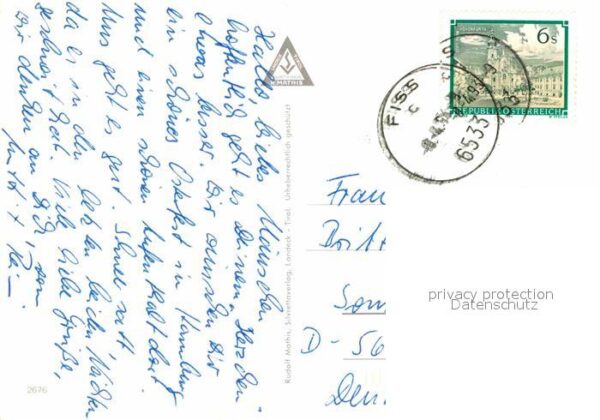 Hallo, liebes Mäuschen
hoffentlich geht es Deinem Herzchen
etwas besser. Wir wünschen Dir
ein schönes Osterfest in Hamburg
und einen schönen Aufenthalt dort
Uns geht es gut. Schnee satt
da es in den letzten beiden Nächten
geschneit hat. Viele liebe Grüße,
wir denken an Dich, von
Mutti +
RUDOLF MATHIS
Rudolf Mathis, Schiwettaverlag, Landeck - Tirol. Urheberrechtlich geschützt
2676
6s
REPUBLIK ÖSTERREICH
FISS
c
6533
Frau
Son
D - 56
privacy protection
Datenschutz